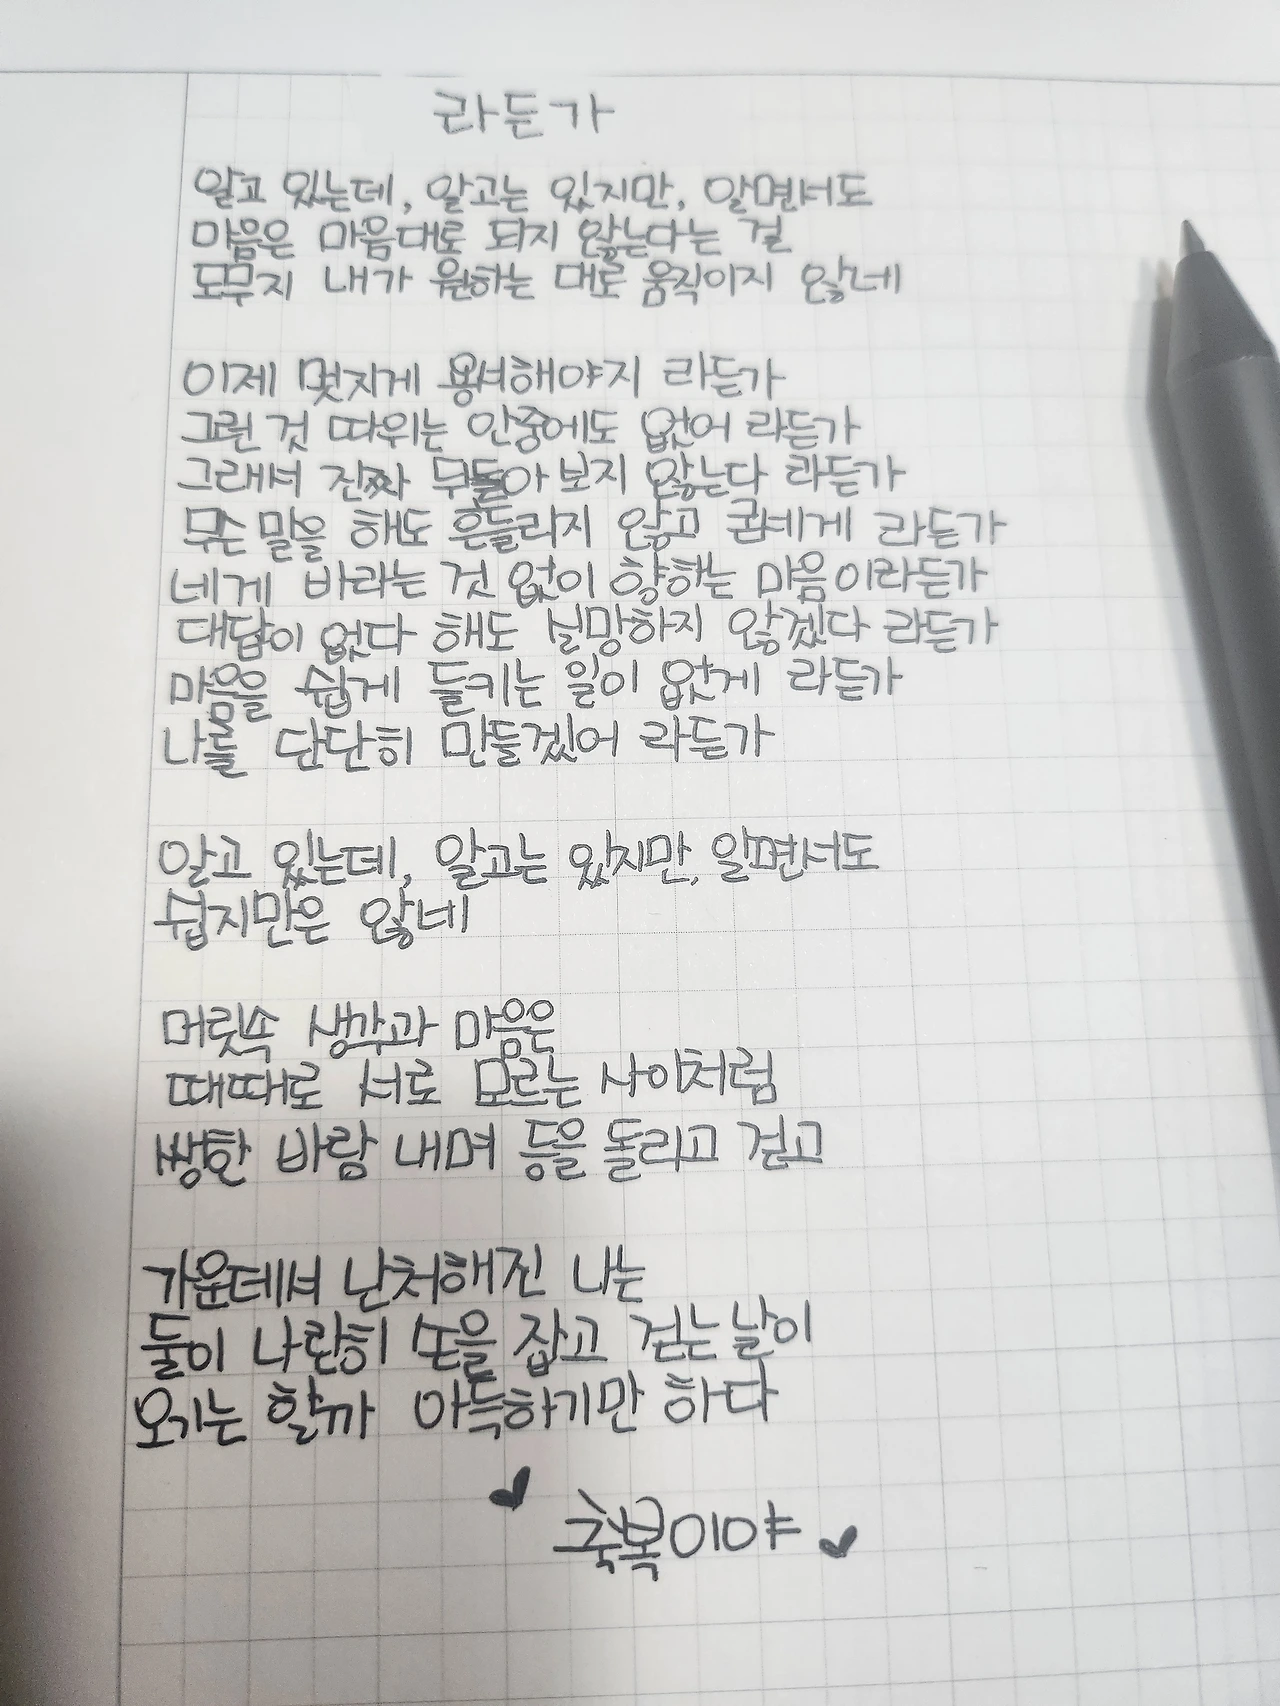 라든가
알고 있는데, 알고는 있지만, 알면서도
마음은 마음대로 되지 않는다는 걸
도무지 내가 원하는 대로 움직이지 않네
이제 멋지게 용서해야지 라든가
그런 것 따위는 안중에도 없어 라든가
그래서 진짜 뒤돌아 보지 않는다 라든가
무슨 말을 해도 흔들리지 않고 굳세게 라든가
네게 바라는 것 없이 향하는 마음이라든가
대답이 없다 해도 실망하지 않겠다 라든가
마음을 쉽게 들키는 일이 없게 라든가
나를 단단히 만들겠어 라든가
알고 있는데, 알고는 있지만, 알면서도
쉽지만은 않네
머릿속 생각과 마음은
때때로 서로 모르는 사이처럼
쌩한 바람 내며 등을 돌리고 걷고
가운데서 난처해진 나는
둘이 나란히 손을 잡고 걷는 날이
오기는 할까 아득하기만 하다
축복이야